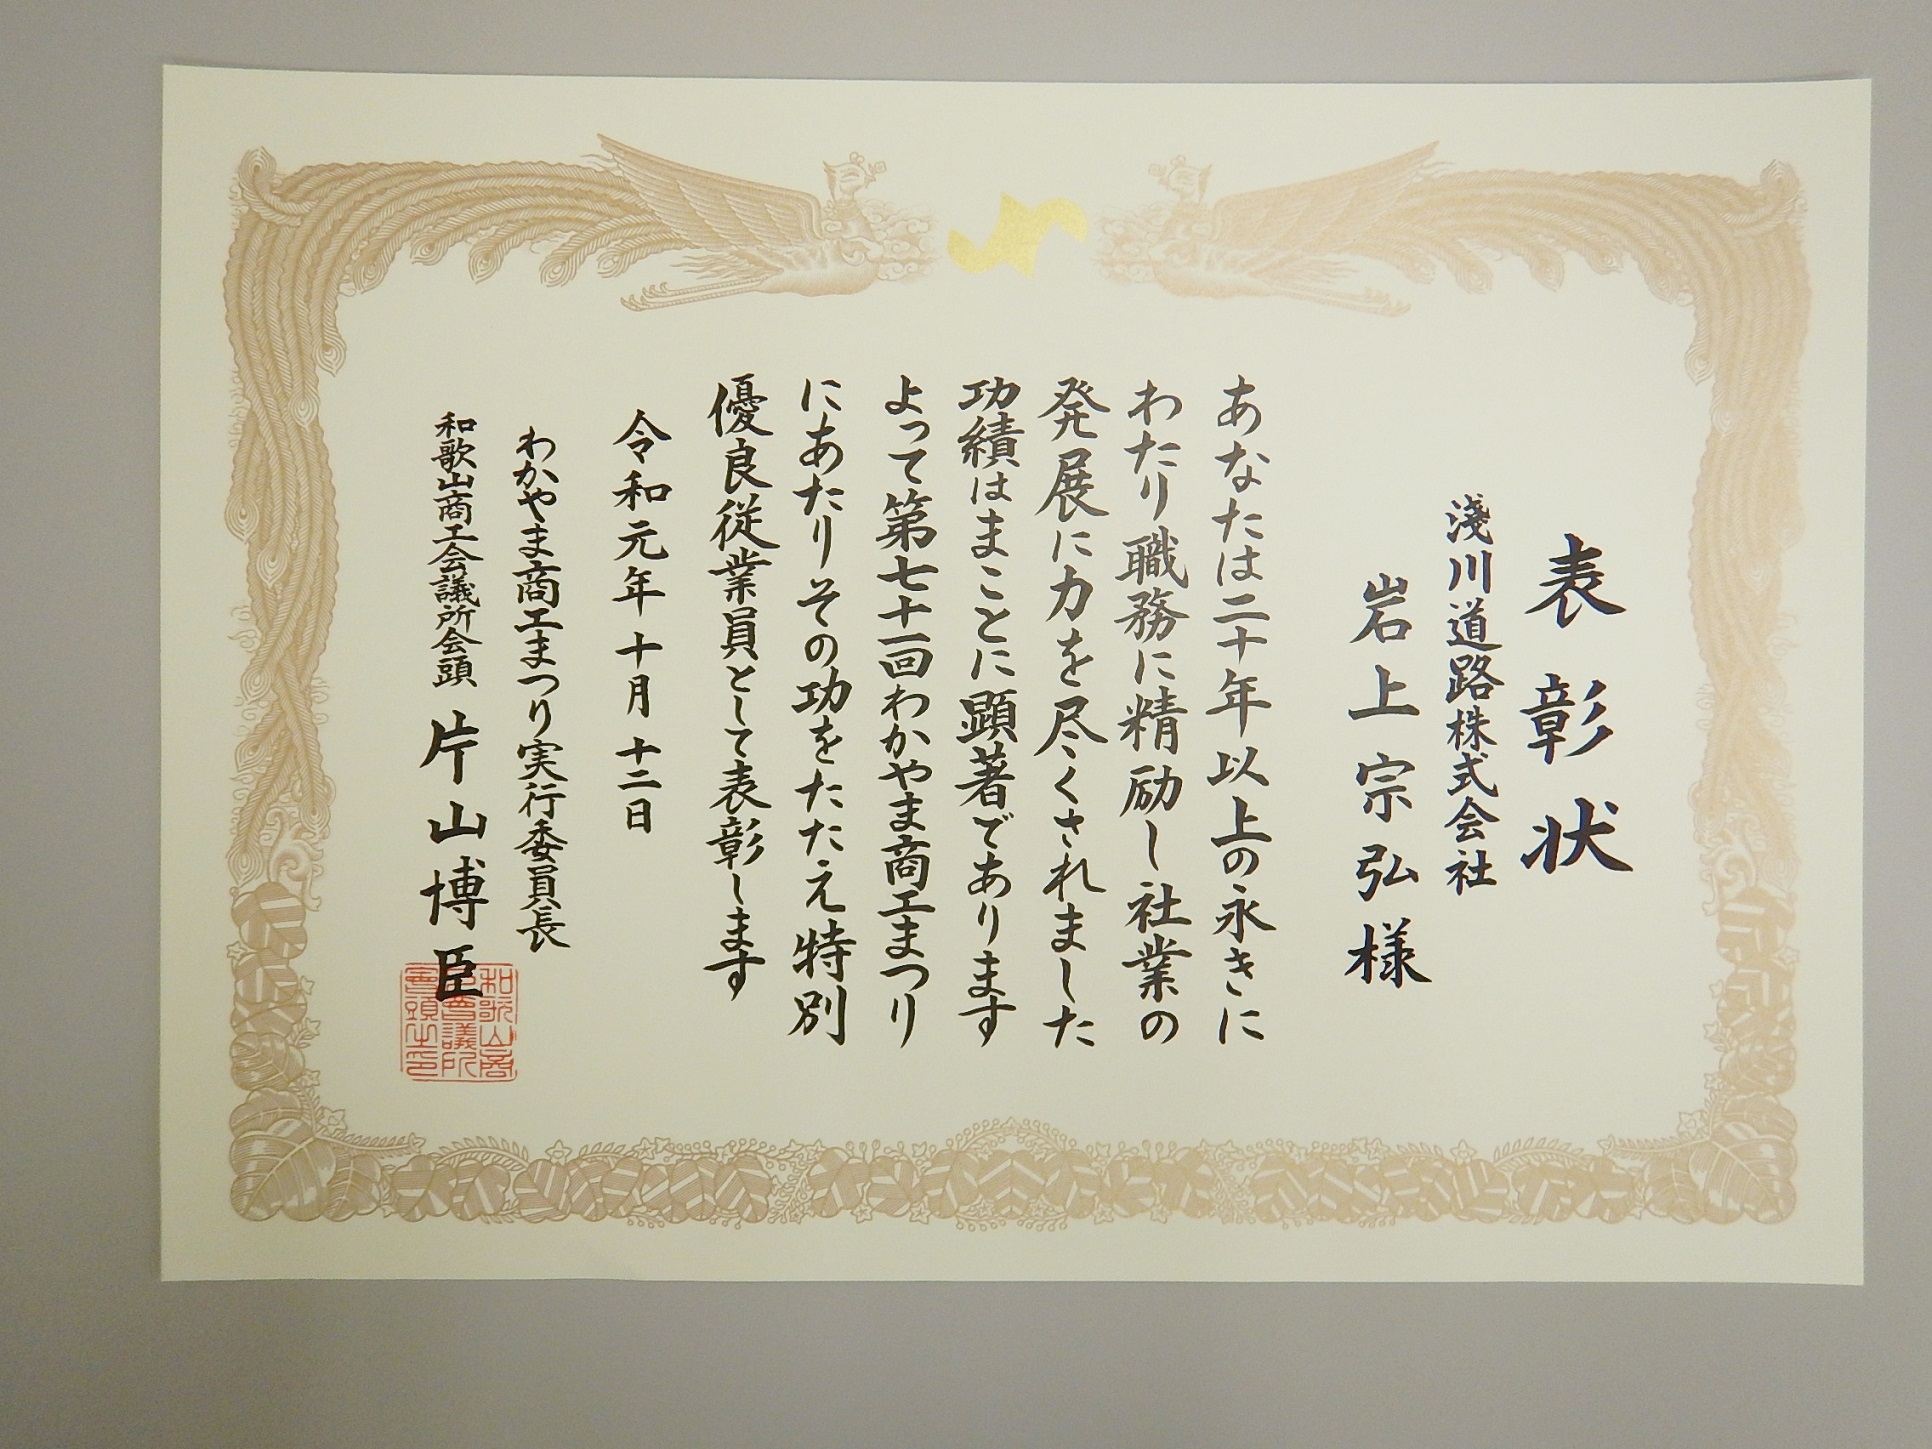 表彰状
淺川道路株式会社
岩上宗弘様
あなたは二十年以上の永きに
わたり職務に精励し社業の
発展に力を尽くされました
功績はまことに顕著であります
よって第七十一回わかやま商工まつり
にあたりその功をたたえ特別
優良従業員として表彰します
令和元年十月十二日
わかやま商工まつり実行委員長
和歌山商工会議所会頭 片山博臣
和歌山商
工會議所
會頭之印